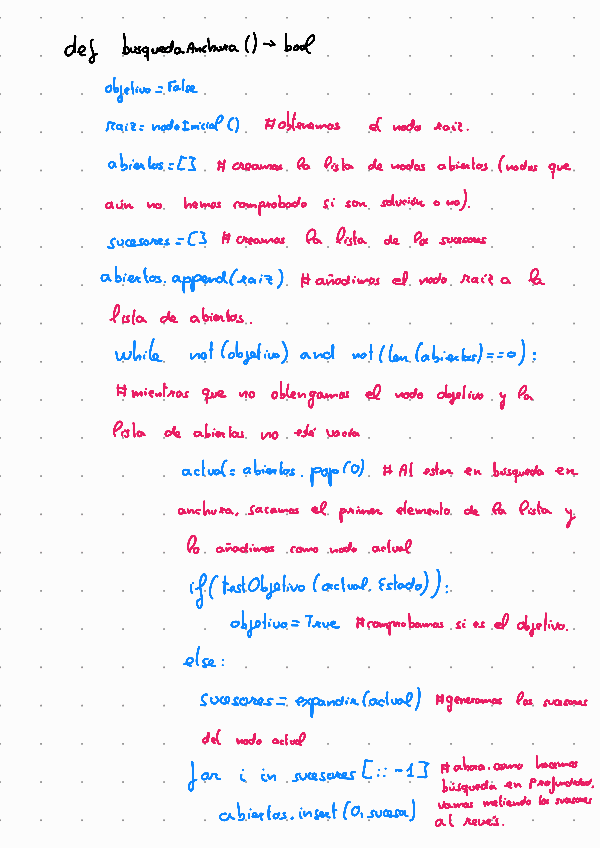 def busquedaAnchura () → bool
objetivo = False
raiz = nodoInicial () #obtenemos el nodo raiz.
abiertos = [] #creamos la lista de nodos abiertos (nodos que
aún no hemos comprobado si son solución o no).
sucesores = [] #creamos la lista de los sucesores
abiertos.append(raiz) #añadimos el nodo raíz a la
lista de abiertos.
while not (objetivo) and not (len (abiertos) == 0) :
#mientras que no obtengamos el nodo objetivo y la
lista de abiertos no esté vacía
actual = abiertos.pop(0) #Al estar en búsqueda en
anchura, sacamos el primer elemento de la lista y
lo añadimos como nodo actual
if (testObjetivo (actual.Estado)) :
objetivo = True #comprobamos si es el objetivo.
else :
sucesores = expandir (actual) #generamos los sucesores
del nodo actual
for i in sucesores [:: -1] #ahora como hacemos
búsqueda en Profundidad,
abiertos.insert (0, sucesor) vamos metiendo los sucesores
al revés.